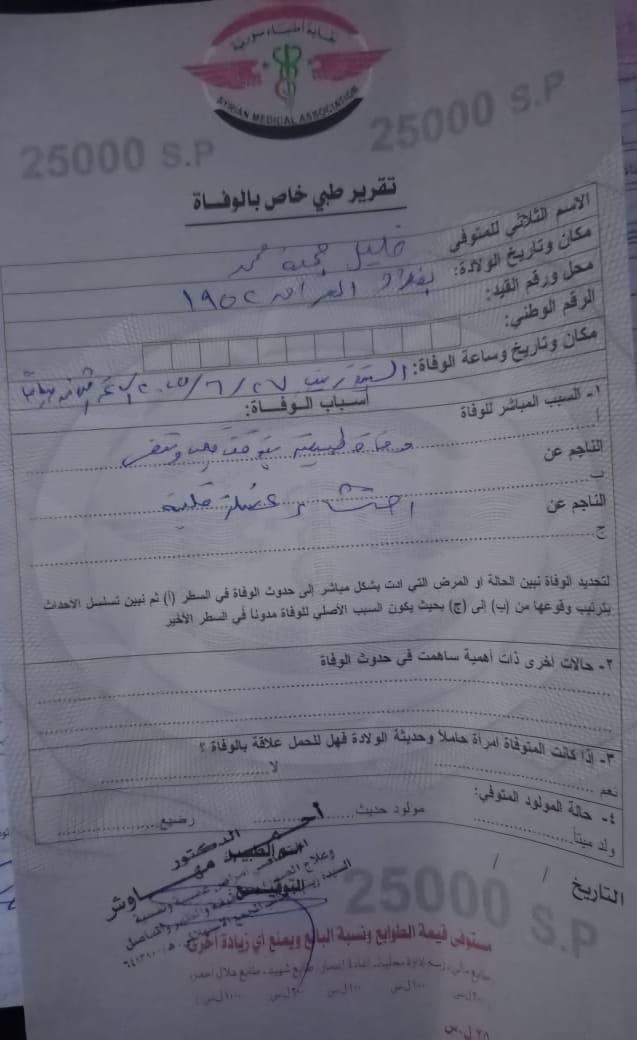 نقابة أطباء سورية
SYRIAN MEDICAL ASSOCIATION
25000 S.P
25000 S.P
تقرير طبي خاص بالوفاة
الاسم الثلاثي للمتوفى خليل جمعة محمد
مكان وتاريخ الولادة: بغداد العراق ١٩٥٢
محل ورقم القيد:
الرقم الوطني:
مكان وتاريخ وساعة الوفاة: السيدة زينب ٢٧/٦/٢٠٢٥
أسباب الوفاة:
١- السبب المباشر للوفاة
أ
وفاة طبيعية بتوقف قلب وتنفس
الناجم عن
ب
احتشاء عضلة قلبية
الناجم عن
ج
لتحديد الوفاة نبين الحالة او المرض التي ادت بشكل مباشر إلى حدوث الوفاة في السطر (أ) ثم نبين تسلسل الاحداث
بترتيب وقوعها من (ب) إلى (ج) بحيث يكون السبب الأصلي للوفاة مدونا في السطر الأخير
٢- حالات أخرى ذات أهمية ساهمت في حدوث الوفاة
٣- إذا كانت المتوفاة امرأة حاملاً وحديثة الولادة فهل للحمل علاقة بالوفاة ؟
نعم لا
٤- حالة المولود المتوفي:
ولد ميتاً مولود حديث رضيع
الدكتور
اسم الطبيب
التوقيع
التاريخ / /
25000 S.P
مستوفى قيمة الطوابع ونسبة البائع ويمنع أي زيادة أخرى
٢٥ ل.س